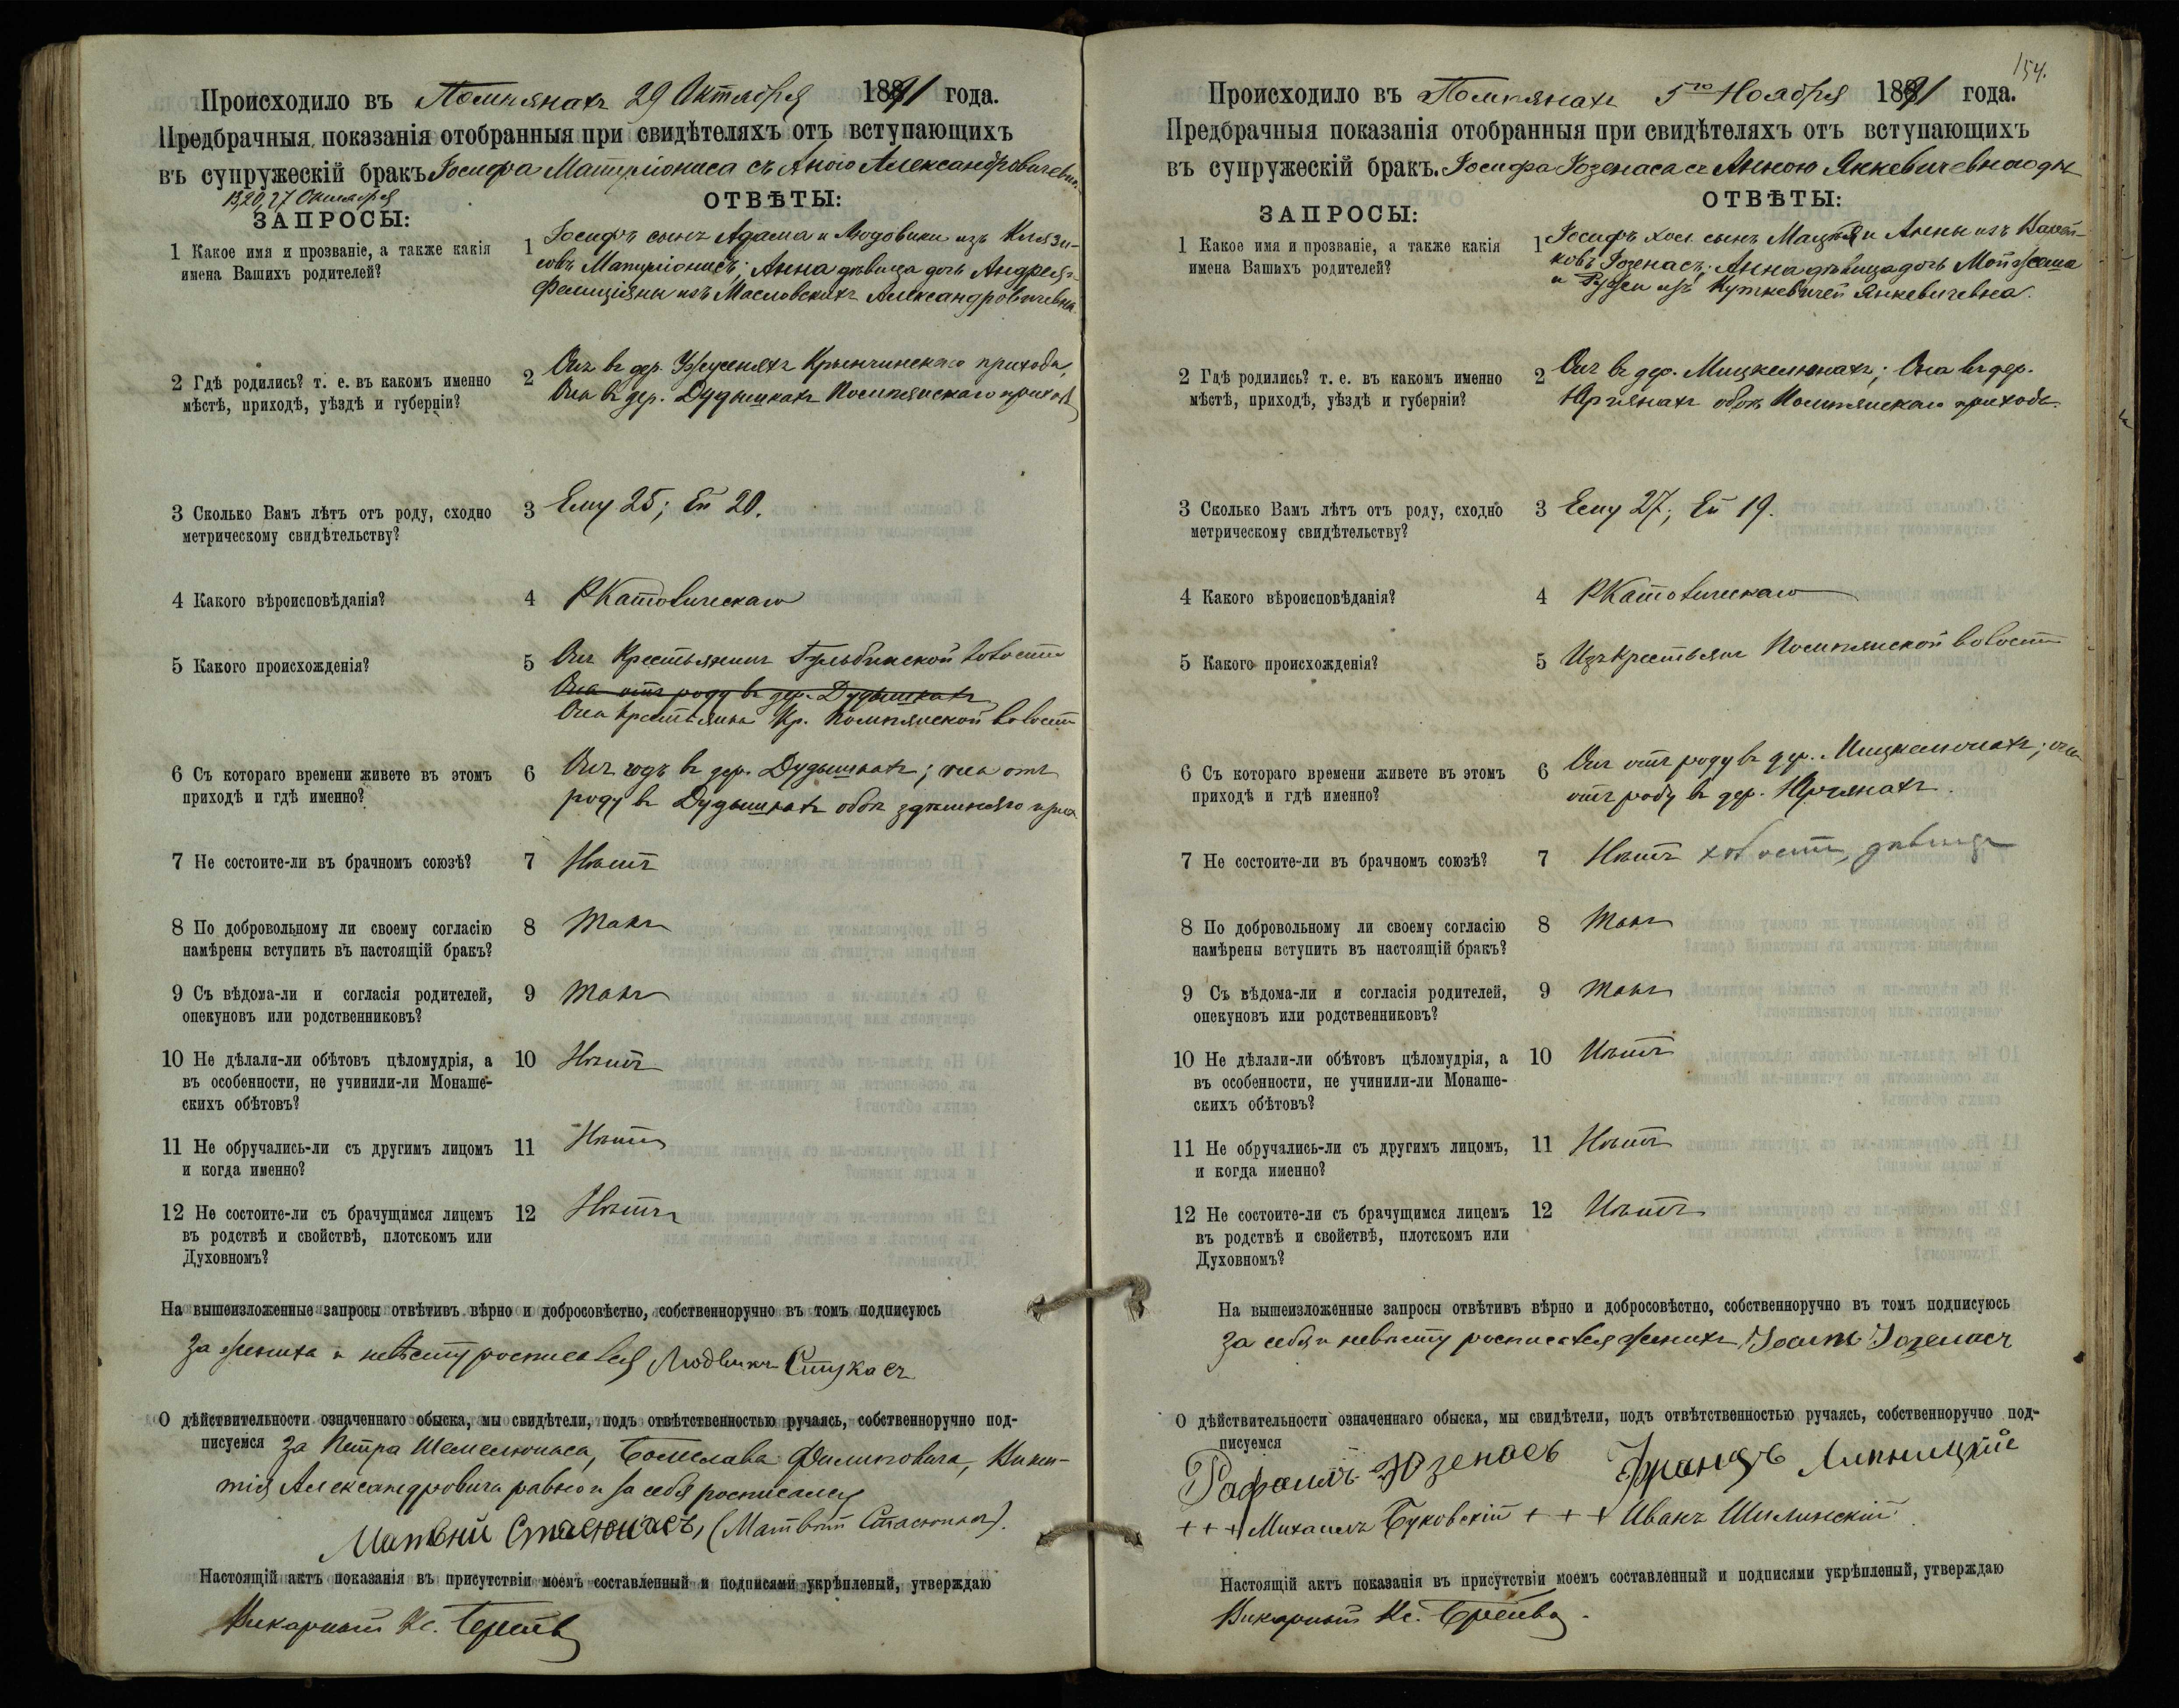 Происходило въ Помпянахъ 29 Октября 1891 года.
Предбрачныя показанія отобранныя при свидѣтеляхъ отъ вступающихъ
въ супружескій бракъ Іосифа съ Анною
13, 20, 27 Октября
ЗАПРОСЫ:
ОТВѢТЫ:
1 Какое имя и прозваніе, а также какія
имена Вашихъ родителей?
1 Іосифъ сынъ Адама и Людовики изъ
Анна дѣвица дочь Андрея и
Фелиціяны изъ Масловскихъ Александровичевна
2 Гдѣ родились? т. е. въ какомъ именно
мѣстѣ, приходѣ, уѣздѣ и губерніи?
2 Онъ въ дер. Крынчинскаго прихода,
Она въ дер. Дудышкахъ Помпянскаго прихода
3 Сколько Вамъ лѣтъ отъ роду, сходно
метрическому свидѣтельству?
3 Ему 25; Ей 20.
4 Какого вѣроисповѣданія?
4 РКатолическаго
5 Какого происхожденія?
5 Онъ Крестьянинъ волости
Она отъ роду въ дер. Дудышкахъ
Она крестьянка Помпянской волости
6 Съ котораго времени живете въ этомъ
приходѣ и гдѣ именно?
6 Онъ годъ въ дер. Дудышкахъ; она отъ
роду въ Дудышкахъ обоя здѣшняго прих
7 Не состоите-ли въ брачномъ союзѣ?
7 Нѣтъ
8 По добровольному ли своему согласію
намѣрены вступить въ настоящій бракъ?
8 Такъ
9 Съ вѣдома-ли и согласія родителей,
опекуновъ или родственниковъ?
9 Такъ
10 Не дѣлали-ли обѣтовъ цѣломудрія, а
въ особенности, не учинили-ли Монаше-
скихъ обѣтовъ?
10 Нѣтъ
11 Не обручались-ли съ другимъ лицомъ
и когда именно?
11 Нѣтъ
12 Не состоите-ли съ брачущимся лицемъ
въ родствѣ и свойствѣ, плотскомъ или
Духовномъ?
12 Нѣтъ
На вышеизложенные запросы отвѣтивъ вѣрно и добросовѣстно, собственноручно въ томъ подписуюсь
За жениха и невѣсту росписался Людвикъ Стукасъ
О дѣйствительности означеннаго обыска, мы свидѣтели, подъ отвѣтственностью ручаясь, собственноручно под-
писуемся за Петра Болеслава Филиповича, Викен-
тія Александровича равно и за себя росписался
Матвѣй Стасюнасъ, (Матвѣй Стасюнасъ).
Настоящій актъ показанія въ присутствіи моемъ составленный и подписями укрѣпленый, утверждаю
Викарный Кс.
154.
Происходило въ Помпянахъ 5го Ноября 1891 года.
Предбрачныя показанія отобранныя при свидѣтеляхъ отъ вступающихъ
въ супружескій бракъ. Іосифа Юзенаса съ Анною Янкевичевною
ЗАПРОСЫ:
ОТВѢТЫ:
1 Какое имя и прозваніе, а также какія
имена Вашихъ родителей?
1 Іосифъ хол. сынъ Мацѣя и Анны изъ
Юзенасъ; Анна дѣвица дочь
и изъ Янкевичевна.
2 Гдѣ родились? т. е. въ какомъ именно
мѣстѣ, приходѣ, уѣздѣ и губерніи?
2 Онъ въ дер. Мицкелюнахъ; Она въ дер.
Юргянахъ обоя Помпянскаго прихода.
3 Сколько Вамъ лѣтъ отъ роду, сходно
метрическому свидѣтельству?
3 Ему 27; Ей 19.
4 Какого вѣроисповѣданія?
4 РКатолическаго
5 Какого происхожденія?
5 Изъ крестьянъ Помпянской волости
6 Съ котораго времени живете въ этомъ
приходѣ и гдѣ именно?
6 Онъ отъ роду въ дер. Мицкелюнахъ; она
отъ роду въ дер. Юргянахъ.
7 Не состоите-ли въ брачномъ союзѣ?
7 Нѣтъ холост, дѣвица
8 По добровольному ли своему согласію
намѣрены вступить въ настоящій бракъ?
8 Такъ
9 Съ вѣдома-ли и согласія родителей,
опекуновъ или родственниковъ?
9 Такъ
10 Не дѣлали-ли обѣтовъ цѣломудрія, а
въ особенности, не учинили-ли Монаше-
скихъ обѣтовъ?
10 Нѣтъ
11 Не обручались-ли съ другимъ лицомъ,
и когда именно?
11 Нѣтъ
12 Не состоите-ли съ брачущимся лицемъ
въ родствѣ и свойствѣ, плотскомъ или
Духовномъ?
12 Нѣтъ
На вышеизложенные запросы отвѣтивъ вѣрно и добросовѣстно, собственноручно въ томъ подписуюсь
За себя и невѣсту росписался женихъ Юзенасъ
О дѣйствительности означеннаго обыска, мы свидѣтели, подъ отвѣтственностью ручаясь, собственноручно под-
писуемся
Рафаилъ Юзенасъ Францъ Липницкій
+ + + Михаилъ Буковскій + + + Иванъ Шилинскій.
Настоящій актъ показанія въ присутствіи моемъ составленный и подписями укрѣпленый, утверждаю
Викарный Кс.